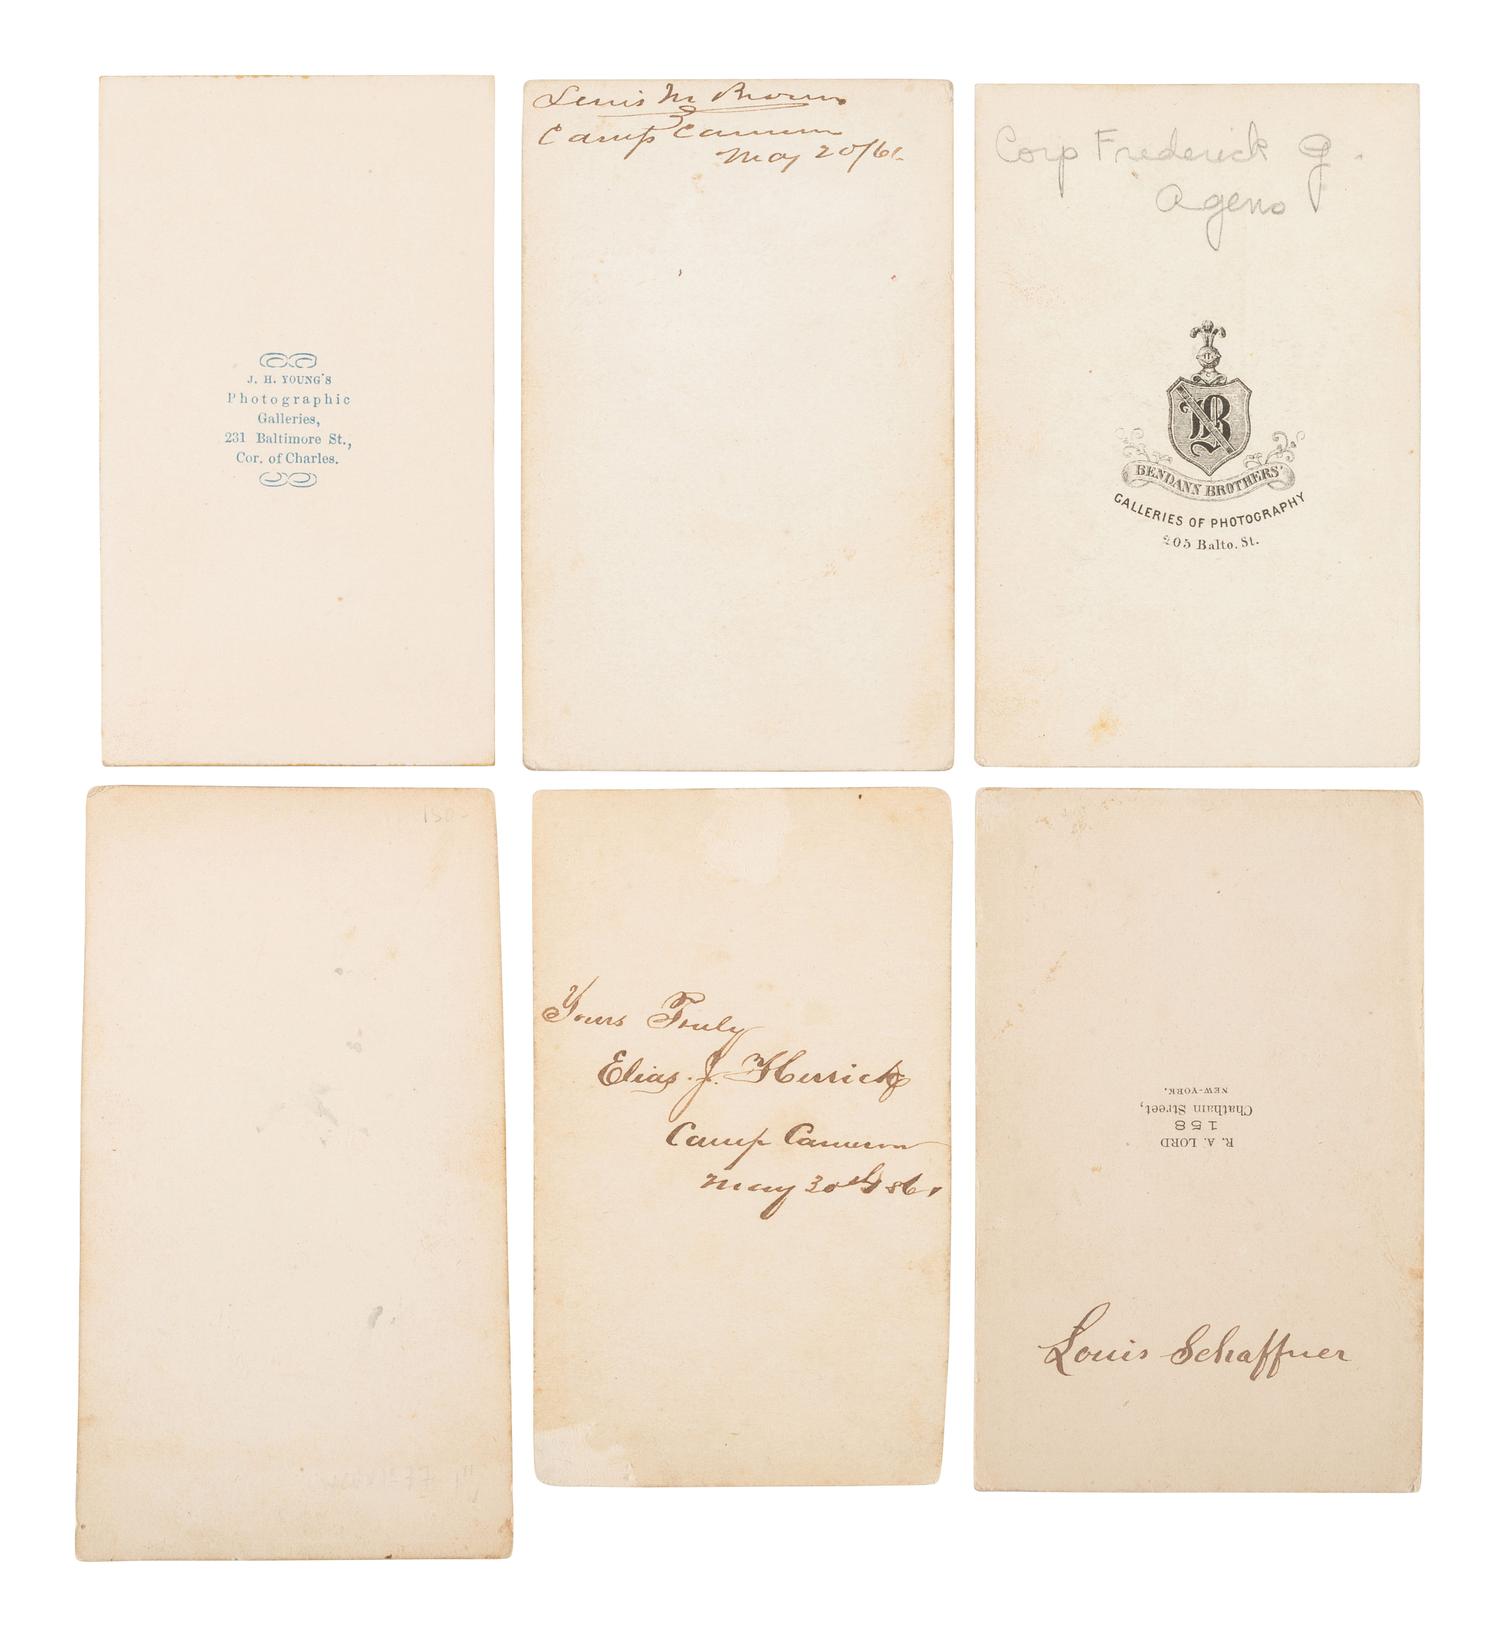 J. H. YOUNG'S
Photographic
Galleries,
231 Baltimore St.,
Cor. of Charles.
Lewis M Brown
Camp Cameron
May 20/61
Corp Frederick G.
Ageno
B
BENDANN BROTHERS'
GALLERIES OF PHOTOGRAPHY
205 Balto. St.
150-
Yours Truly
Elias. J. Herrick
Camp Cameron
May 30th 1861
R. A. LORD
158
Chatham Street,
NEW-YORK.
Louis Schaffner